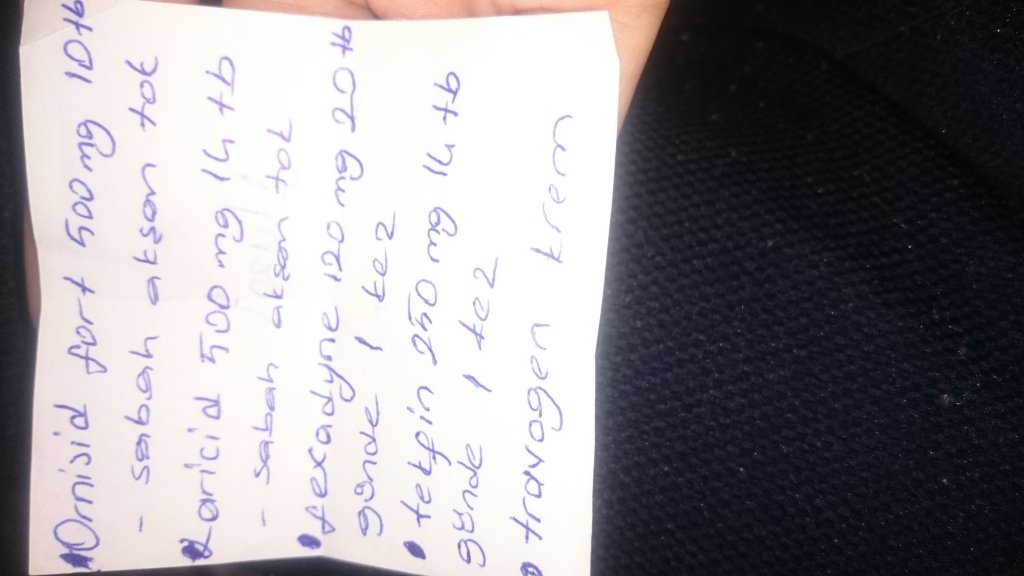 • Ornisid fort 500 mg 10 tb
- sabah akşam tok
• Laricid 500 mg 14 tb
- sabah akşam tok
• fexadyne 120 mg 20 tb
günde 1 kez
• tekfin 250 mg 14 tb
günde 1 kez
• travogen krem